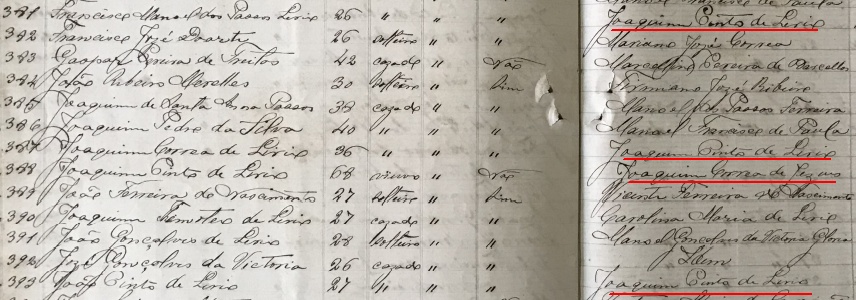 381 Francisco Manoel dos Passos Lirio 26 " " "
382 Francisco José Duarte 26 solteiro " "
383 Gaspar Pereira de Freitas 42 casado " Não
384 João Ribeiro Merelles 30 solteiro " Sim
385 Joaquim de Santa Anna Passos 38 casado " "
386 Joaquim Pedro da Silva 40 " " "
387 Joaquim Correa de Lirio 36 " " "
388 Joaquim Pinto de Lirio 68 viuvo " Não
389 João Ferreira do Nascimento 27 solteiro " Sim
390 Joaquim de Lirio 27 casado " "
391 João Gonçalves de Lirio 28 solteiro " "
392 José Gonçalves da Victoria 26 casado " "
393 João Pinto de Lirio 27 " " "
Joaquim Pinto de Lirio
Mariano José Correa
Marcellino Pereira de Barcellos
Firmiano José Ribeiro
Manoel dos Passos Ferreira
Manoel Francisco de Paula
Joaquim Pinto de Lirio
Joaquim Correa de Jesus
Vicente Ferreira do Nascimento
Carolina Maria de Lirio
Manoel Gonçalves da Victoria Gloria
Idem
Joaquim Pinto de Lirio